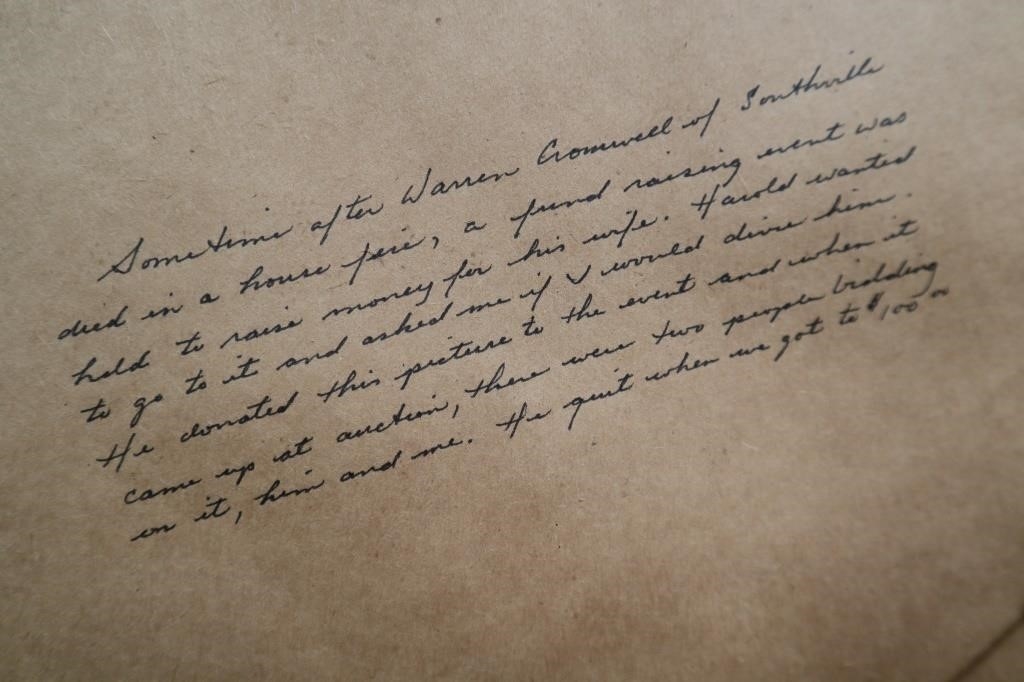 Sometime after Warren Cromwell of Southville
died in a house fire, a fund raising event was
held to raise money for his wife. Harold wanted
to go to it and asked me if I would drive him.
He donated this picture to the event and when it
came up at auction, there were two people bidding
on it, him and me. He quit when we got to $100 00